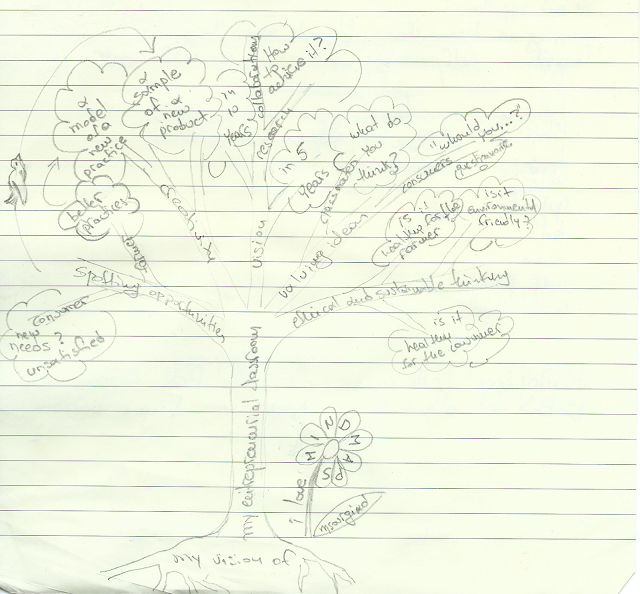 How to achieve it?
collaborations
research
in 10 years
a sample of a new product
a model of a new practice
creativity
better practices
farmer
spotting opportunities
consumer
new needs?
unsatisfied
vision
in 5 years
what do you think?
classmates
valuing ideas
"would you...?"
consumers
questionnaire
is it healthy for the farmer
is it environmental friendly?
ethical and sustainable thinking
is it healthy for the consumer
my entrepreneurial classroom
my vision of
i love
MIND MAPS